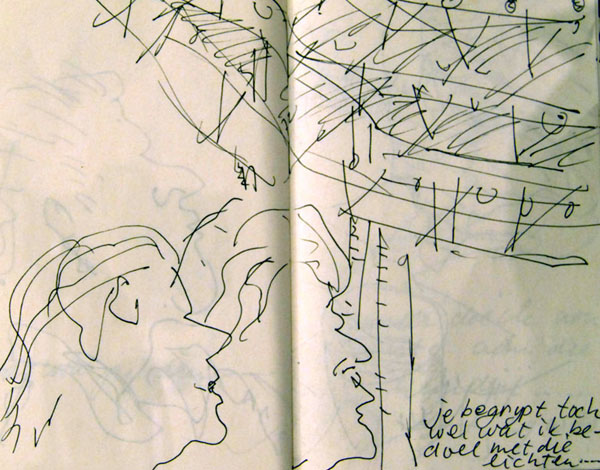 je begrypt toch
wel wat ik be-
doel met die
lichten......